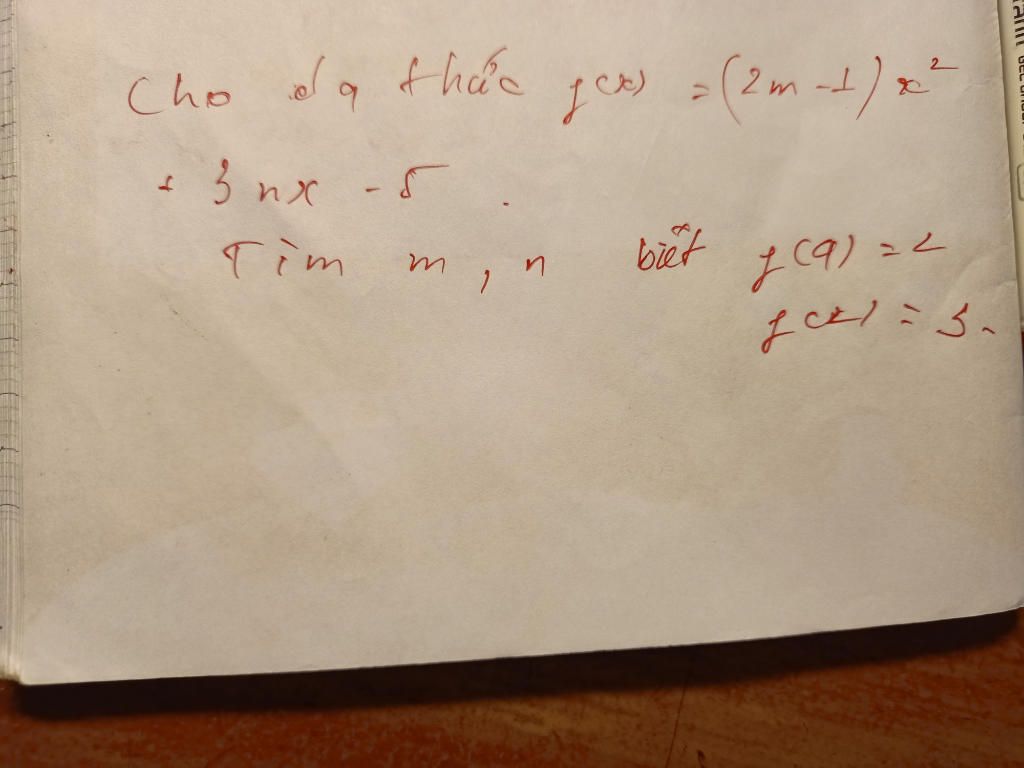 Cho đa thức f(x) = (2m - 1) x²
+ 3nx - 5.
Tìm m, n biết f(9) = 2
f(2) = 3.